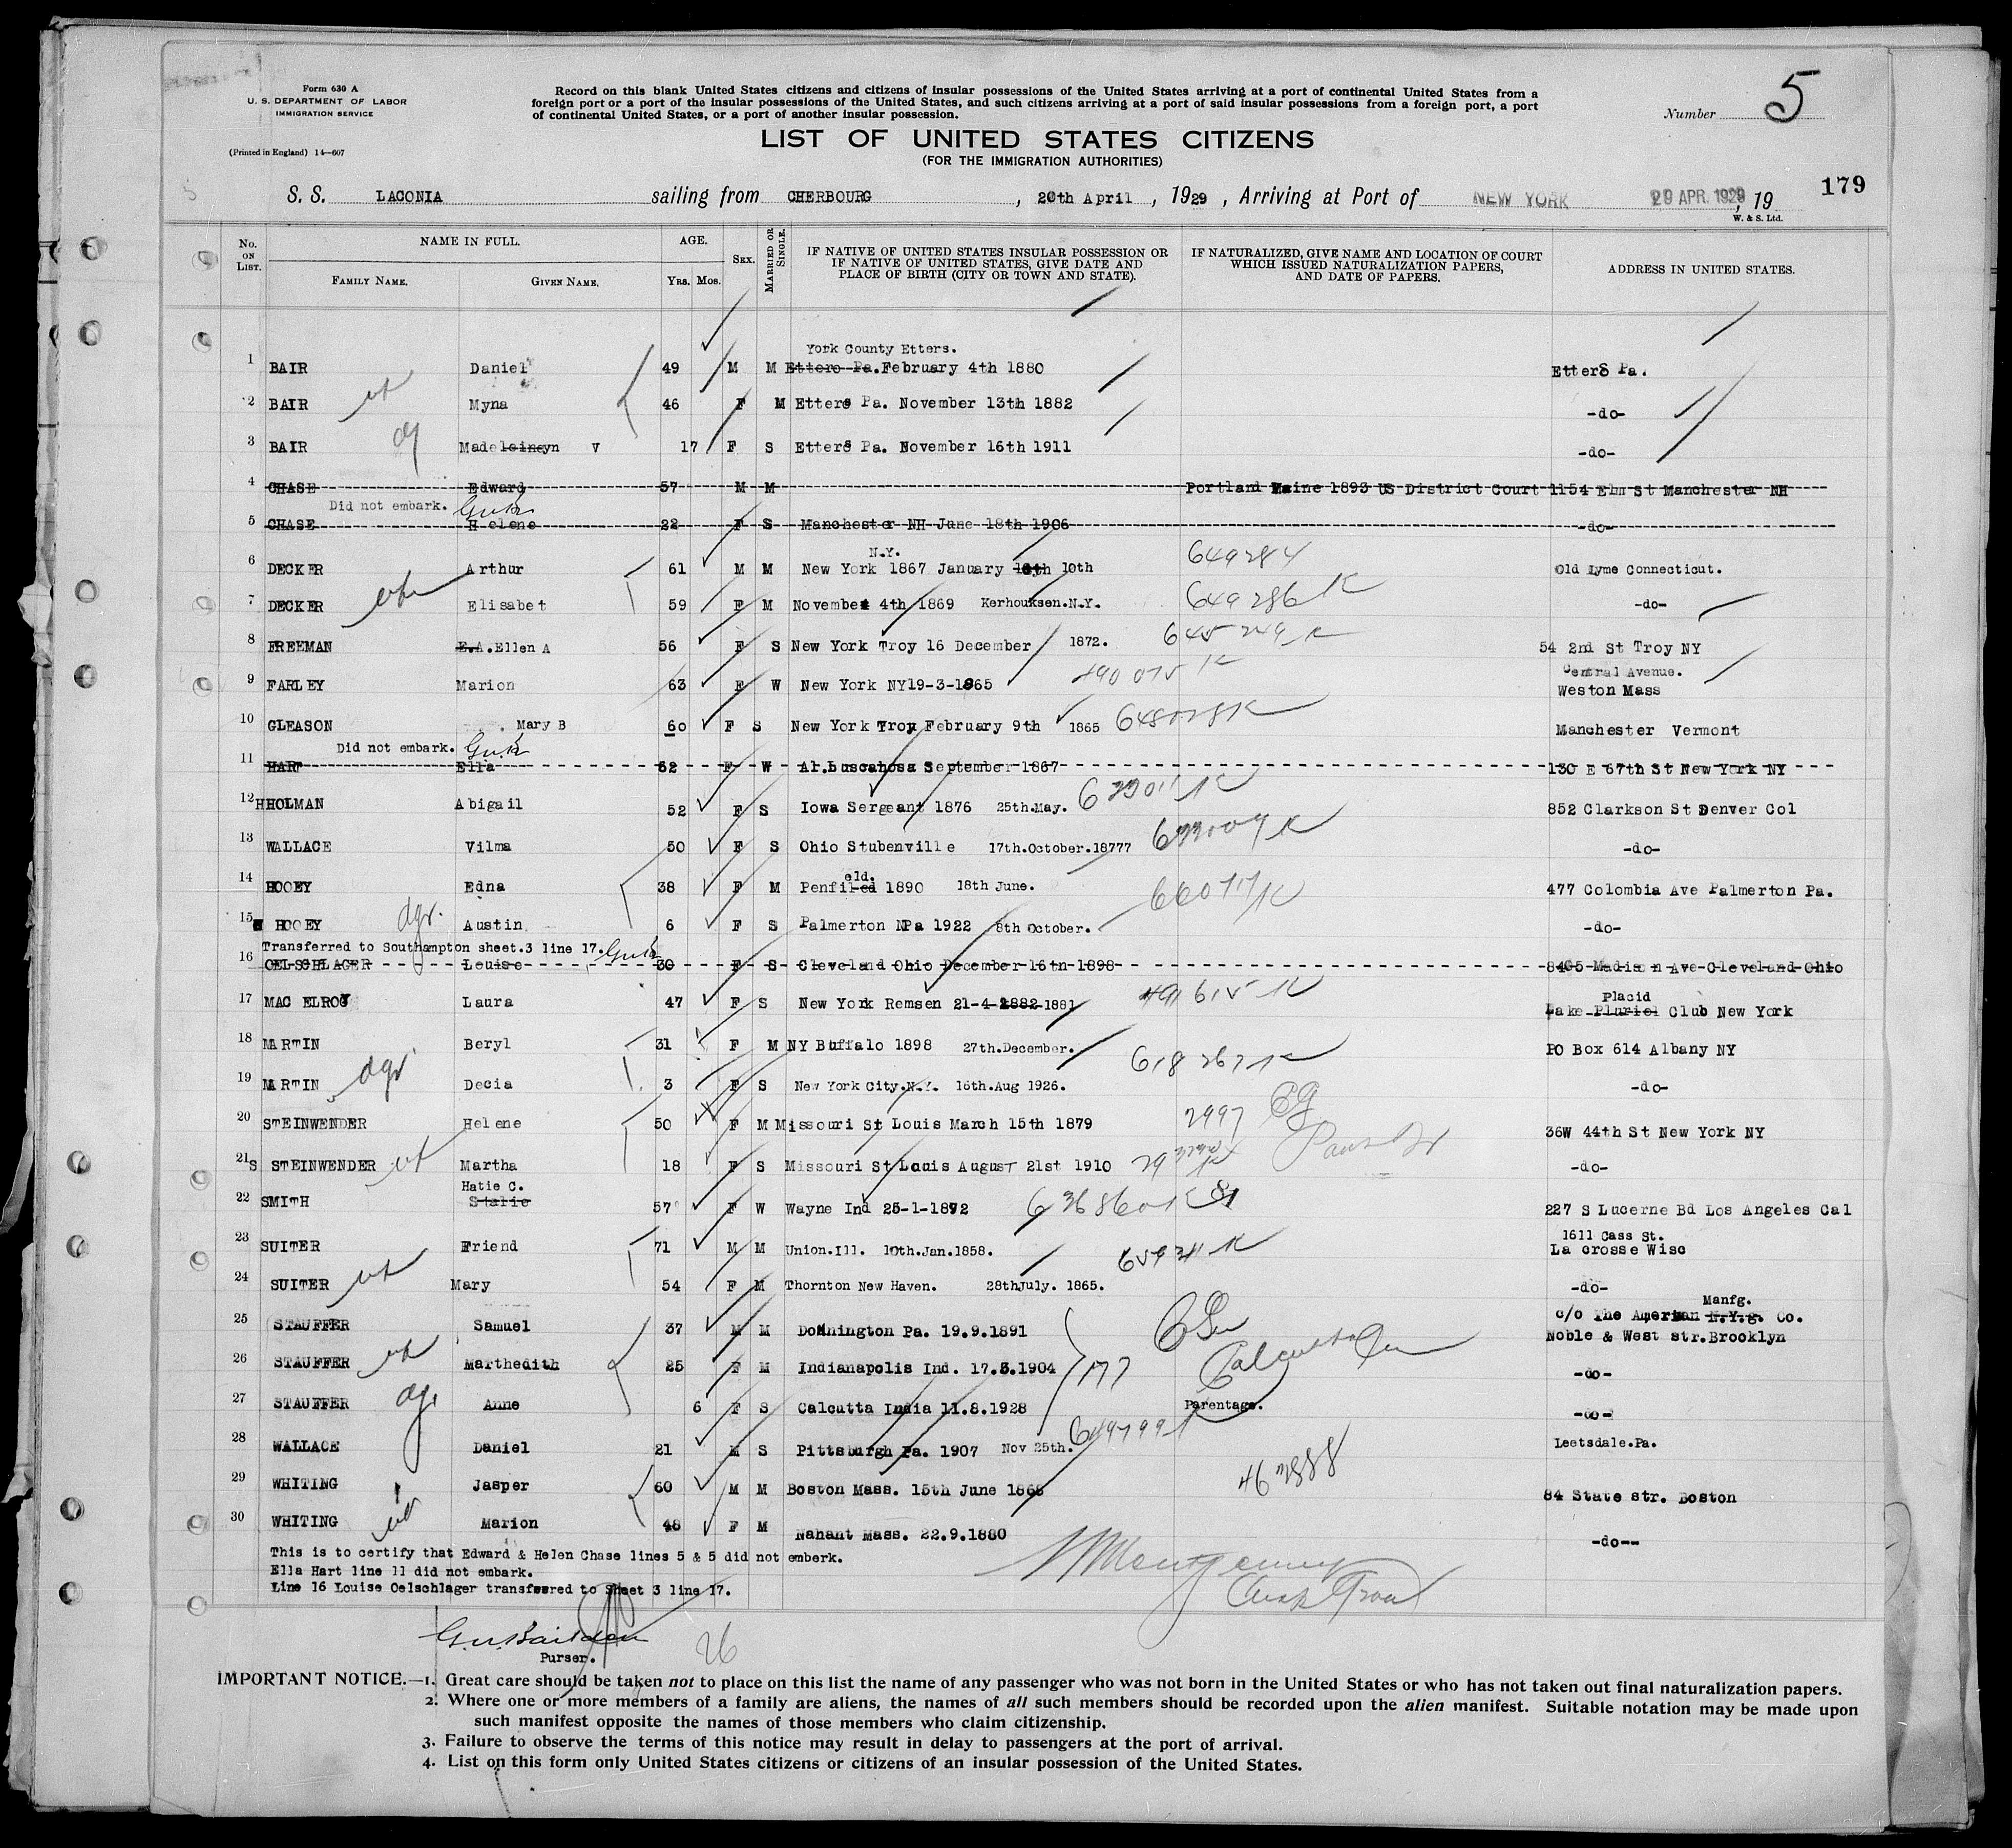 Form 630 A
U. S. DEPARTMENT OF LABOR
IMMIGRATION SERVICE
(Printed in England) 14—607
Record on this blank United States citizens and citizens of insular possessions of the United States arriving at a port of continental United States from a
foreign port or a port of the insular possessions of the United States, and such citizens arriving at a port of said insular possessions from a foreign port, a port
of continental United States, or a port of another insular possession.
Number 5
LIST OF UNITED STATES CITIZENS
(FOR THE IMMIGRATION AUTHORITIES)
S. S. LACONIA sailing from CHERBOURG , 20th April , 1929 , Arriving at Port of NEW YORK 29 APR. 1929 , 19 179
W. & S. Ltd.
No. ON LIST. NAME IN FULL. AGE. SEX. MARRIED OR SINGLE. IF NATIVE OF UNITED STATES INSULAR POSSESSION OR IF NATIVE OF UNITED STATES, GIVE DATE AND PLACE OF BIRTH (CITY OR TOWN AND STATE). IF NATURALIZED, GIVE NAME AND LOCATION OF COURT WHICH ISSUED NATURALIZATION PAPERS, AND DATE OF PAPERS. ADDRESS IN UNITED STATES.
FAMILY NAME. GIVEN NAME. YRS. MOS.
York County Etters.
1 BAIR Daniel 49 M M Etters Pa. February 4th 1880 Etters Pa.
2 BAIR Myna 46 F M Etters Pa. November 13th 1882 -do-
3 BAIR Madeleineyn V 17 F S Etters Pa. November 16th 1911 -do-
4 CHASE Edward 57 M M Portland Maine 1893 US District Court 1154 Elm St Manchester NH
Did not embark.
5 CHASE Helene 22 F S Manchester NH June 18th 1906 -do-
N.Y. 649284
6 DECKER Arthur 61 M M New York 1867 January 10th Old Lyme Connecticut.
7 DECKER Elisabet 59 F M November 4th 1869 Kerhouksen.N.Y. 649286 K -do-
8 FREEMAN E.A. Ellen A 56 F S New York Troy 16 December 1872. 54 2nd St Troy NY
Central Avenue.
9 FARLEY Marion 63 F W New York NY 19-3-1865 Weston Mass
10 GLEASON Mary B 60 F S New York Troy February 9th 1865 Manchester Vermont
Did not embark.
11 HART Ella 62 F W September 1867 130 E 67th St New York NY
12 HHOLMAN Abigail 52 F S Iowa Sergeant 1876 25th.May. 852 Clarkson St Denver Col
13 WALLACE Vilma 50 F S Ohio Stubenville 17th.October.18777 -do-
eld.
14 HOOEY Edna 38 F M Penfil-ed 1890 18th June. 477 Colombia Ave Palmerton Pa.
15 HOOEY Austin 6 F S Palmerton Pa 1922 8th October. -do-
Transferred to Southampton sheet.3 line 17.
16 OELSCHLAGER Louise 30 F S Cleveland Ohio December 16th 1898 8405 Madison Ave Cleveland Ohio
Placid
17 MAC ELROY Laura 47 F S New York Remsen 21-4-1882-1881 Lake Pluriel Club New York
18 MARTIN Beryl 31 F M NY Buffalo 1898 27th.December. PO Box 614 Albany NY
19 MARTIN Decia 3 F S New York City.N.Y. 16th.Aug 1926. -do-
20 STEINWENDER Helene 50 F M Missouri St Louis March 15th 1879 2997 36W 44th St New York NY
21 S STEINWENDER Martha 18 F S Missouri St Louis August 21st 1910 -do-
Hatie C.
22 SMITH Stalie 57 F W Wayne Ind 25-1-1872 227 S Lucerne Bd Los Angeles Cal
1611 Cass St.
23 SUITER Friend 71 M M Union.Ill. 10th.Jan.1858. La crosse Wisc
24 SUITER Mary 54 F M Thornton New Haven. 28thJuly. 1865. -do-
Manfg.
c/o The American N.Y.g. Co.
25 STAUFFER Samuel 37 M M Donnington Pa. 19.9.1891 Noble & West str.Brooklyn
26 STAUFFER Marthedith 25 F M Indianapolis Ind. 17.3.1904 177 Calcutta -do-
27 STAUFFER Anne 6 F S Calcutta India 11.8.1928 Parentage. -do-
28 WALLACE Daniel 21 M S Pittsburgh Pa. 1907 Nov 25th. Leetsdale.Pa.
29 WHITING Jasper 60 M M Boston Mass. 15th June 1868 462888 84 State str. Boston
30 WHITING Marion 48 F M Nahant Mass. 22.9.1880 -do--
This is to certify that Edward & Helen Chase lines 5 & 5 did not emberk.
Ella Hart line 11 did not embark.
Line 16 Louise Oelschlager transferred to Sheet 3 line 17.
Purser. 26
IMPORTANT NOTICE.—1. Great care should be taken not to place on this list the name of any passenger who was not born in the United States or who has not taken out final naturalization papers.
2. Where one or more members of a family are aliens, the names of all such members should be recorded upon the alien manifest. Suitable notation may be made upon
such manifest opposite the names of those members who claim citizenship.
3. Failure to observe the terms of this notice may result in delay to passengers at the port of arrival.
4. List on this form only United States citizens or citizens of an insular possession of the United States.